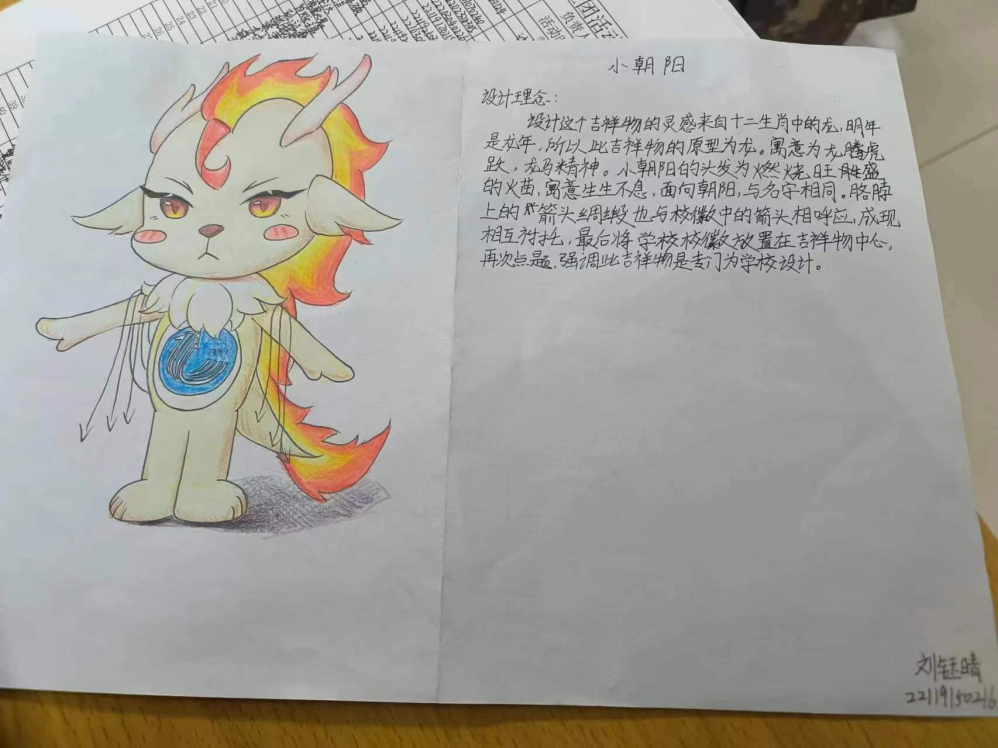 小朝阳
设计理念：
设计这个吉祥物的灵感来自十二生肖中的龙,明年
是龙年,所以此吉祥物的原型为龙。寓意为龙腾虎
跃,龙马精神。小朝阳的头发为燃烧旺盛
的火苗,寓意生生不息,面向朝阳,与名字相同。胳膊
上的箭头绸缎也与校徽中的箭头相呼应,成现
相互衬托,最后将学校校徽放置在吉祥物中心,
再次点题,强调此吉祥物是专门为学校设计。
刘钰晴
22119150216